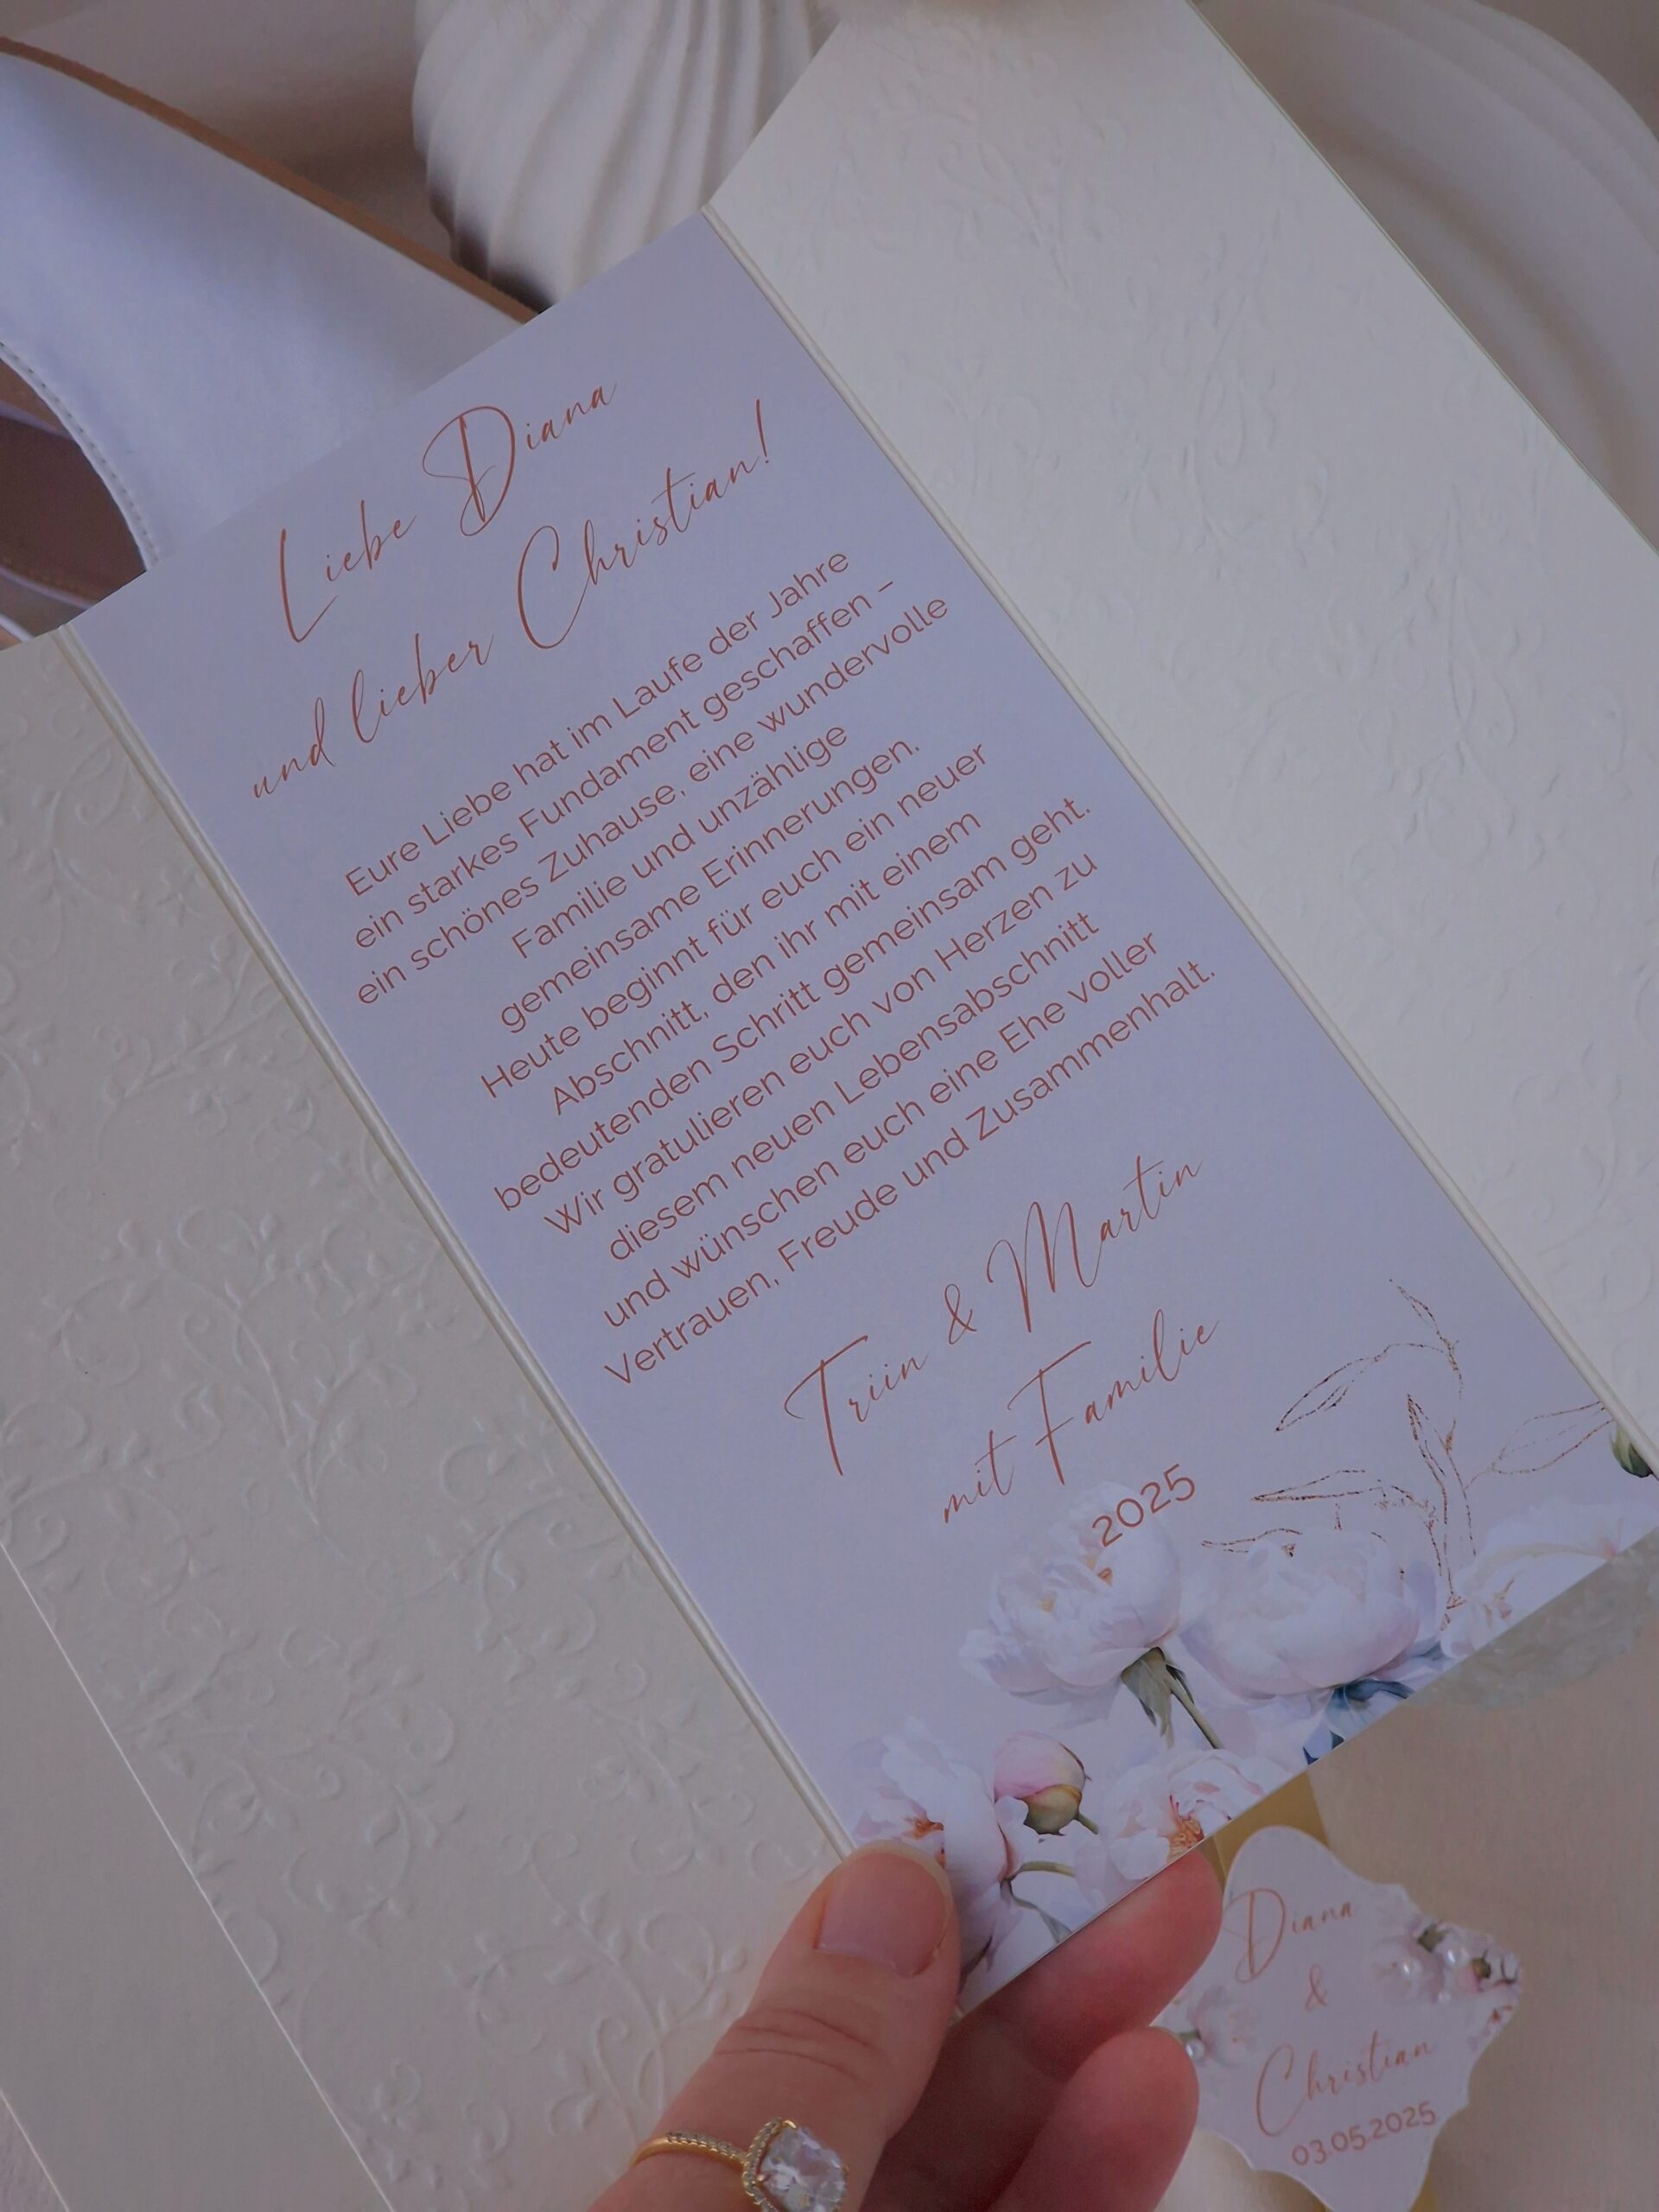 Liebe Diana
und lieber Christian!
Eure Liebe hat im Laufe der Jahre
ein starkes Fundament geschaffen –
ein schönes Zuhause, eine wundervolle
Familie und unzählige
gemeinsame Erinnerungen.
Heute beginnt für euch ein neuer
Abschnitt, den ihr mit einem
bedeutenden Schritt gemeinsam geht.
Wir gratulieren euch von Herzen zu
diesem neuen Lebensabschnitt
und wünschen euch eine Ehe voller
Vertrauen, Freude und Zusammenhalt.
Triin & Martin
mit Familie
2025
Diana
&
Christian
03.05.2025